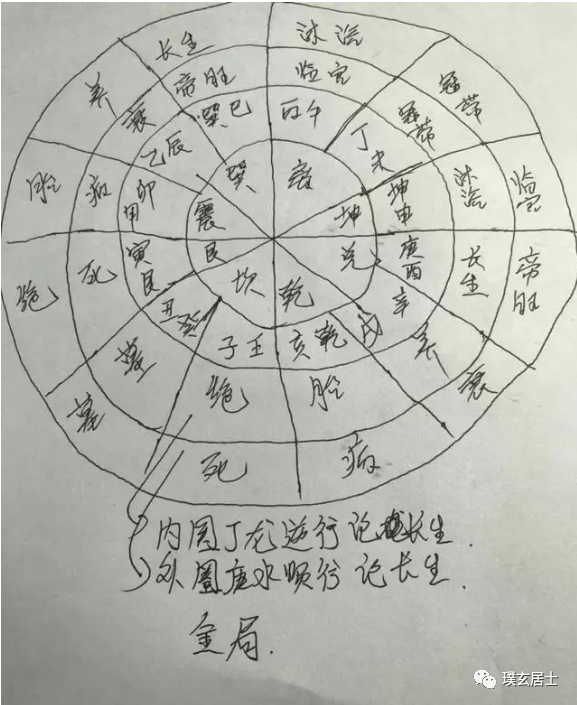 长生
沐浴
养
冠带
帝旺
临官
衰
冠带
巽巳
丙午
胎
病
乙辰
丁未
沐浴
临官
巽
离
甲卯
震
坤
坤申
绝
死
寅艮
艮
兑
庚酉
长生
帝旺
坎
乾
辛
丑癸
戌
养
衰
子壬
亥乾
墓
墓
绝
胎
死
病
内圈丁龙逆行论长生.
外圈庚水顺行论长生.
金局.
璞玄居士